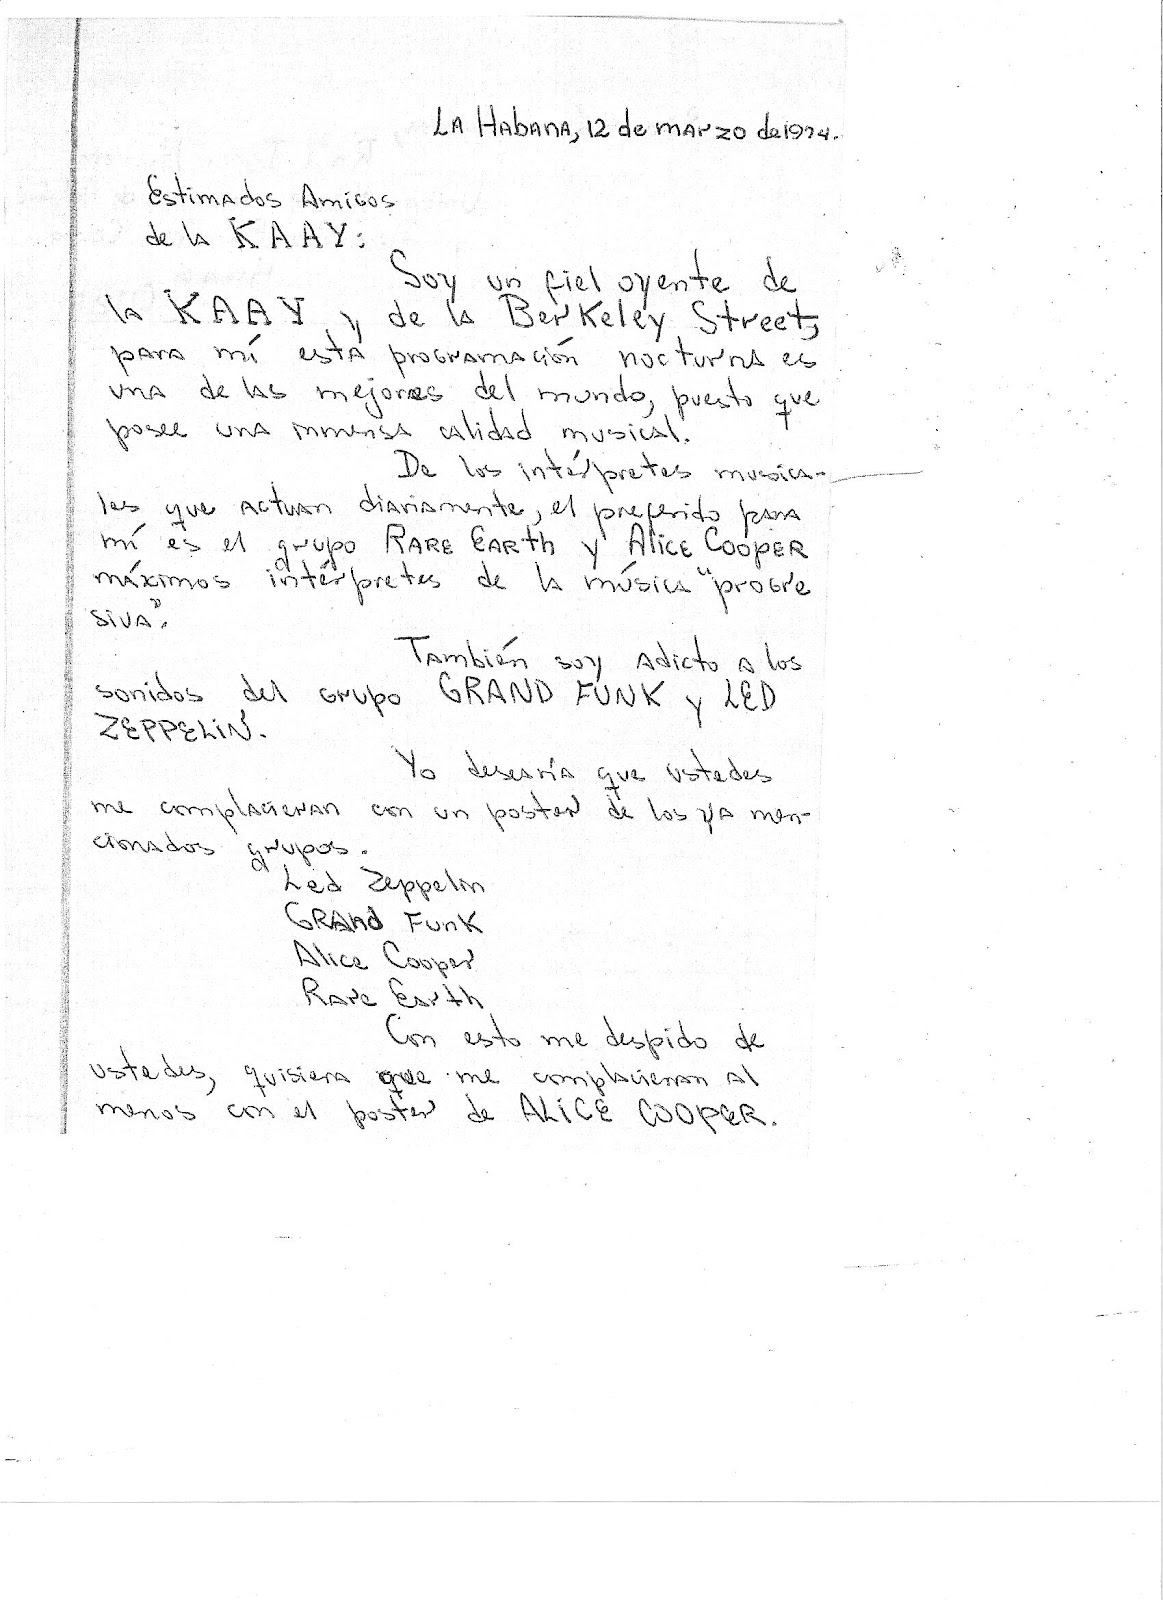 La Habana, 12 de marzo de 1974.
Estimados Amigos
de la KAAY:
Soy un fiel oyente de
la KAAY y de la Berkeley Street,
para mí está programación nocturna es
una de las mejores del mundo, puesto que
posee una inmensa calidad musical.
De los intérpretes musica-
les que actuan diariamente, el preferido para
mí es el grupo RARE EARTH y ALICE COOPER
máximos intérpretes de la música "progre
siva".
También soy adicto a los
sonidos del grupo GRAND FUNK y LED
ZEPPELIN.
Yo desearía que ustedes
me complacieran con un poster de los ya men-
cionados grupos.
Led Zeppelin
GRAND FUNK
Alice Cooper
Rare Earth
Con esto me despido de
ustedes, quisiera que me complacieran al
menos con el poster de ALICE COOPER.